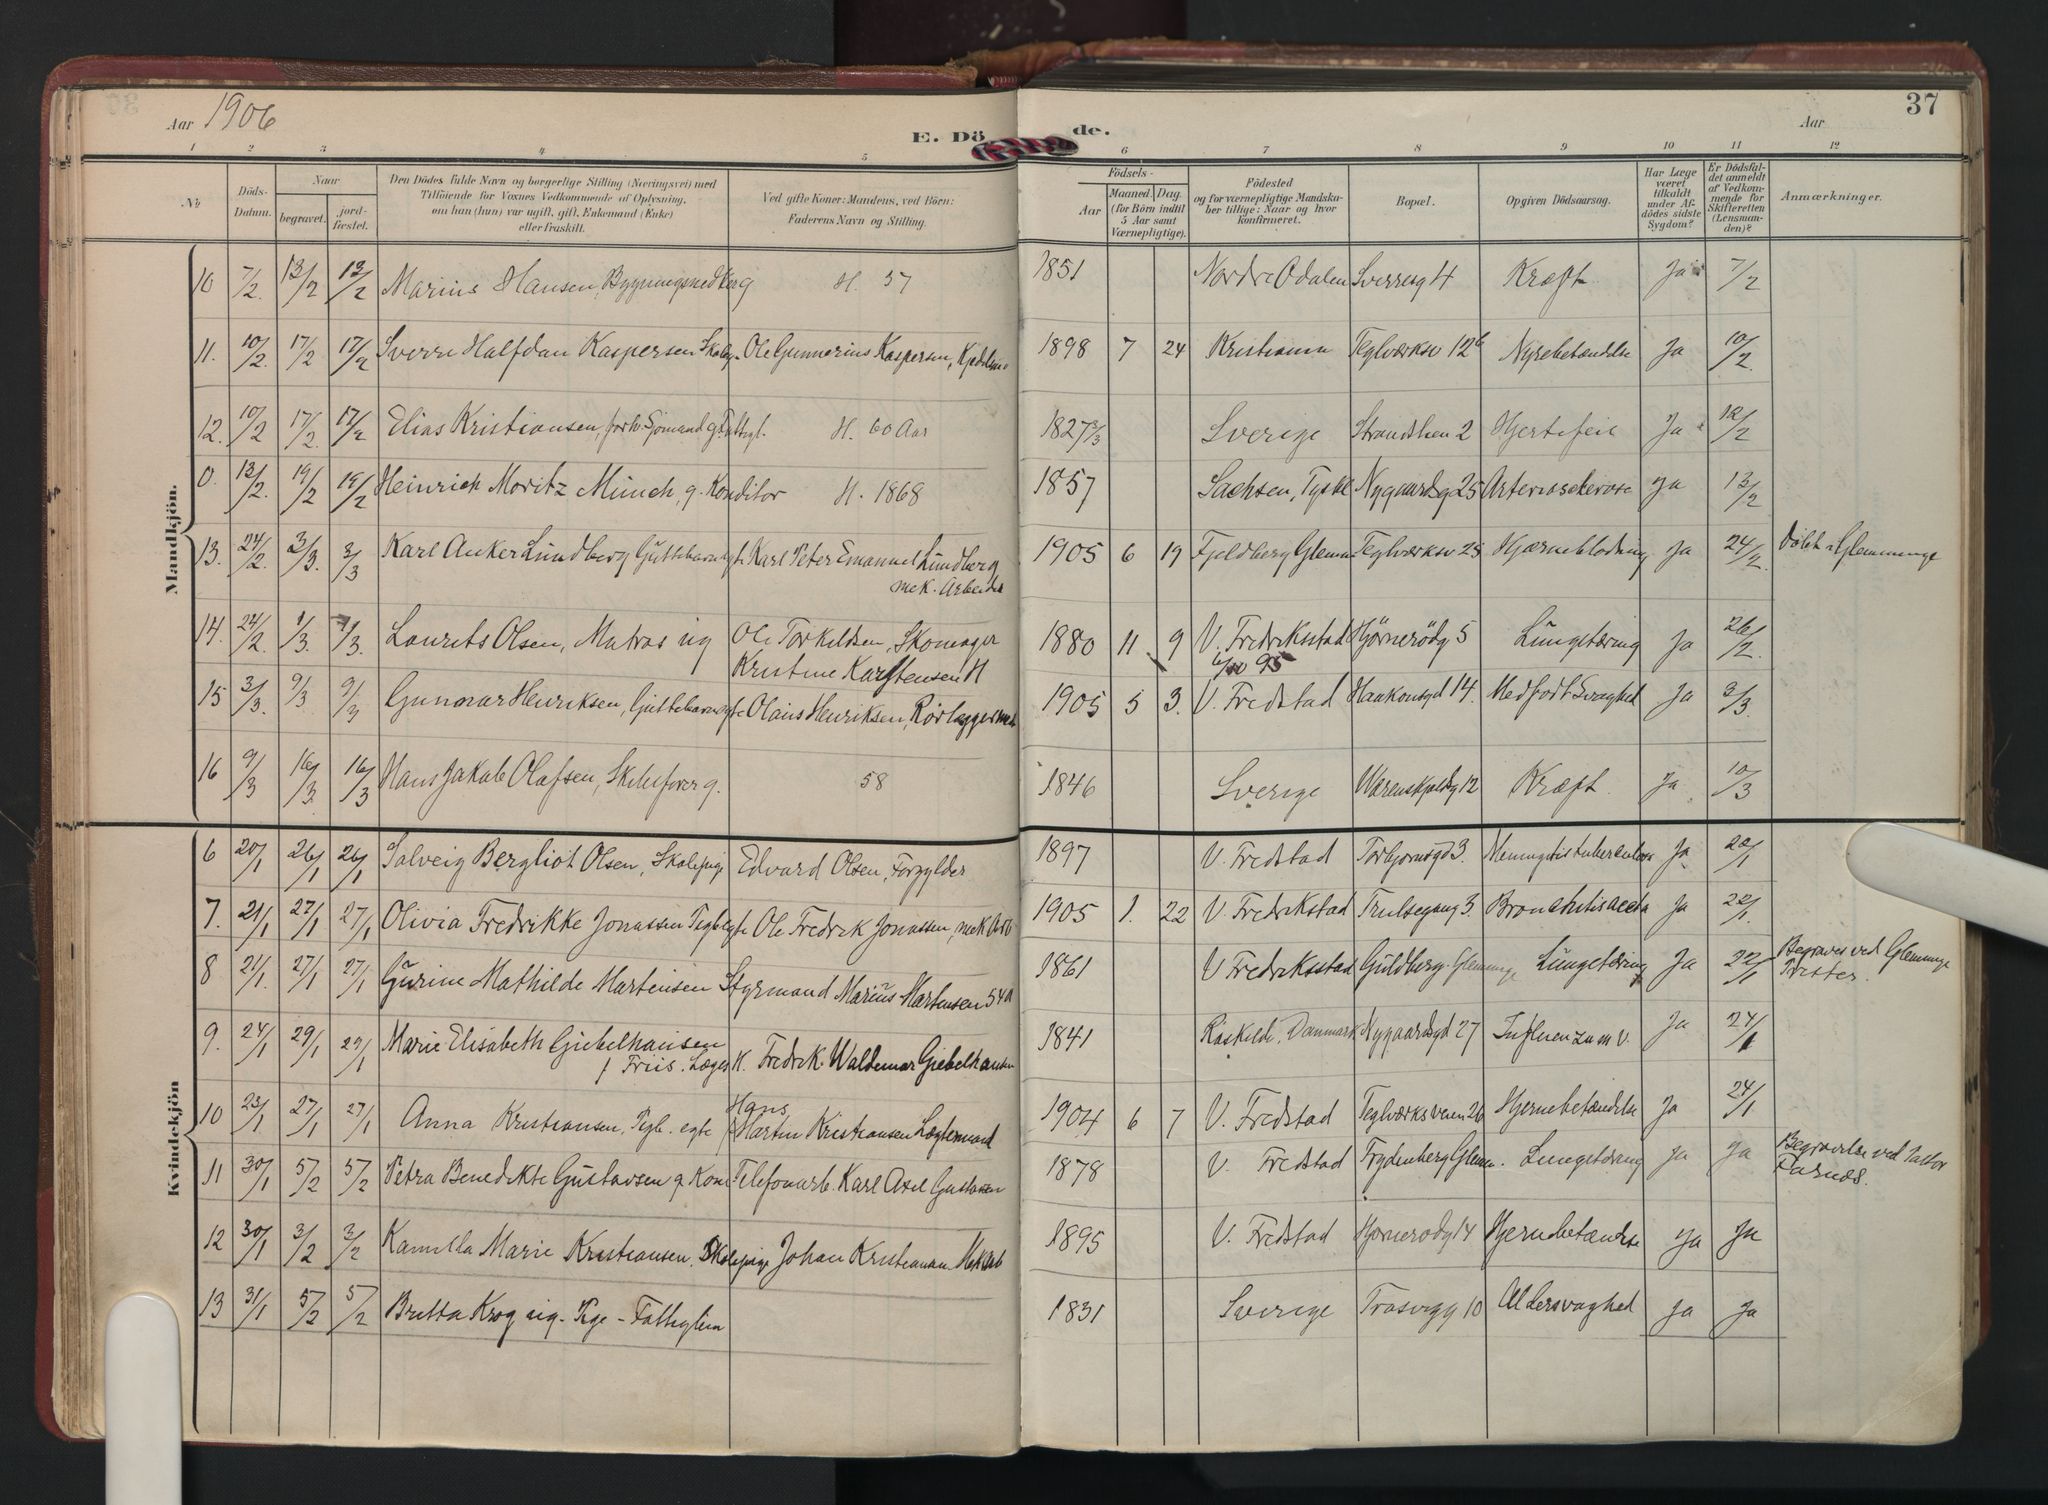 Aar 1906
E. Dö
de.
37
Aar
1 2 3 4 5 6 7 8 9 10 11 12
No
Döds-Datum.
Naar
begravet.
jord-fæstet.
Den Dödes fulde Navn og borgerlige Stilling (Næringsvei) med
Tilföiende for Voxnes Vedkommende af Oplysning,
om han (hun) var ugift, gift, Enkemand (Enke)
eller fraskilt.
Ved gifte Koner: Mandens, ved Börn:
Faderens Navn og Stilling.
Födsels-
Aar
Maaned. Dag.
(for Börn indtil
5 Aar samt
Værnepligtige).
Födested
og for værnepligtige Mandska-
ber tillige: Naar og hvor
konfirmeret.
Bopæl.
Opgiven Dödsaarsag.
Har Læge
været
tilkaldt
under Af-
dödes sidste
Sygdom?
Er Dödsfal-
det anmeldt
af Vedkom-
mende for
Skifteretten
(Lensman-
den)?
Anmærkninger.
Mandkjön.
10 7/2. 13/2 13/2 Marius Hansen, Bygningssned g H. 57 1851 Nordre Odalen Sverresg 4 Kræft Ja 7/2
11. 10/2. 17/2 17/2 Sverre Halfdan Kaspersen Skoleg. Ole Gunnerius Kaspersen, Kjedelsm 1898 7 24 Kristiania Teglværksv 12b Nyrebetændelse Ja 10/2.
12. 10/2 17/2. 17/2 Elias Kristiansen, forh. Sjömand g. Fattigl. H. 60 Aar 1827 3/3 Sverige Strandhen 2 Hjertefeil Ja 12/2
0. 13/2. 19/2 19/2 Heinrich Moritz Münch, g. Konditor H. 1868 1857 Sachsen, Tyskl Nygaardsg 25 Arteriosclerose Ja 13/2
13. 24/2. 3/3. 3/3 Karl Anker Lundberg Guttebarn egte Karl Peter Emanuel Lundberg
mek. Arbeider 1905 6 19 Fjeldberg Glemm Teglværksv 25 Hjerneblødning Ja 24/2. Døbt i Glemminge
14. 24/2. 1/3. 1/3. Laurits Olsen, Matros ug Ole Torkildsen, Skomager
Kristine Karstensen H 1880 11 9 V. Fredriksstad
6/10 95 Hjørnerödg 5 Lungetæring Ja 26/2.
15 3/3. 9/3 9/3 Gunnar Henriksen, Guttebarn egte Olaus Henriksen, Rørlægger 1905 5 3. V. Fredstad Haakonsgd 14. Medfødt Svaghed Ja 3/3.
16 9/3 16/3. 16/3 Hans Jakob Olafsen, g. 58 1846 Sverige Wærenskjoldsg 12 Kræft Ja 10/3
Kvindekjön
6 20/1 26/1 26/1 Solveig Bergliot Olsen, Skolepige Edvard Olsen, Forgylder 1897 V. Fredstad Torbjornsgd 3. Meningitis tuberculosa Ja 20/1
7. 21/1 27/1 27/1 Olivia Fredrikke Jonassen Pigeb egte Ole Fredrik Jonassen, mek Arb 1905 1. 22 V. Fredrikstad Trulsegang 3. Bronchitis acuta Ja 22/1.
8 21/1. 27/1 27/1 Gurine Mathilde Martinsen Styrmand Marius Martinsen 54 1861 V Fredriksstad Guldberg. Glemminge Lungetæring Ja 22/1 Begraves ved Glemminge
Prester.
9. 24/1 29/1 29/1 Marie Elisabeth Giebelhausen
f Friis. Læges H. Fredrik Waldemar Giebelhausen 1841 Roskilde, Danmark Nygaardsgd 27 Influenza m. v. Ja 24/1
10 23/1 27/1 27/1 Anna Kristiansen, Pigb. egte Hans
Martin Kristiansen Lægtermand 1904 6 7 V. Fredstad Teglværksveien 26 Hjernebetændelse Ja 24/1
11 30/1 5/2 5/2 Petra Benedikte Gustavsen g. Kone Telefonarb. Karl Axel Gustavsen 1878 V. Fredstad Frydenberg Glemm. Lungetæring Ja Ja Begravelse ved Pastor
12 30/1 3/2 3/2 Kamilla Marie Kristiansen, Skolepige Johan Kristiansen Mek Arb 1895 V. Fredstad Hjørnerødg 14 Hjernebetændelse Ja Ja
13 31/1 5/2 5/2 Britta Krog ug. Pige - Fattiglem 1831 Sverige Trosvigg 10 Aldersvaghed Ja Ja